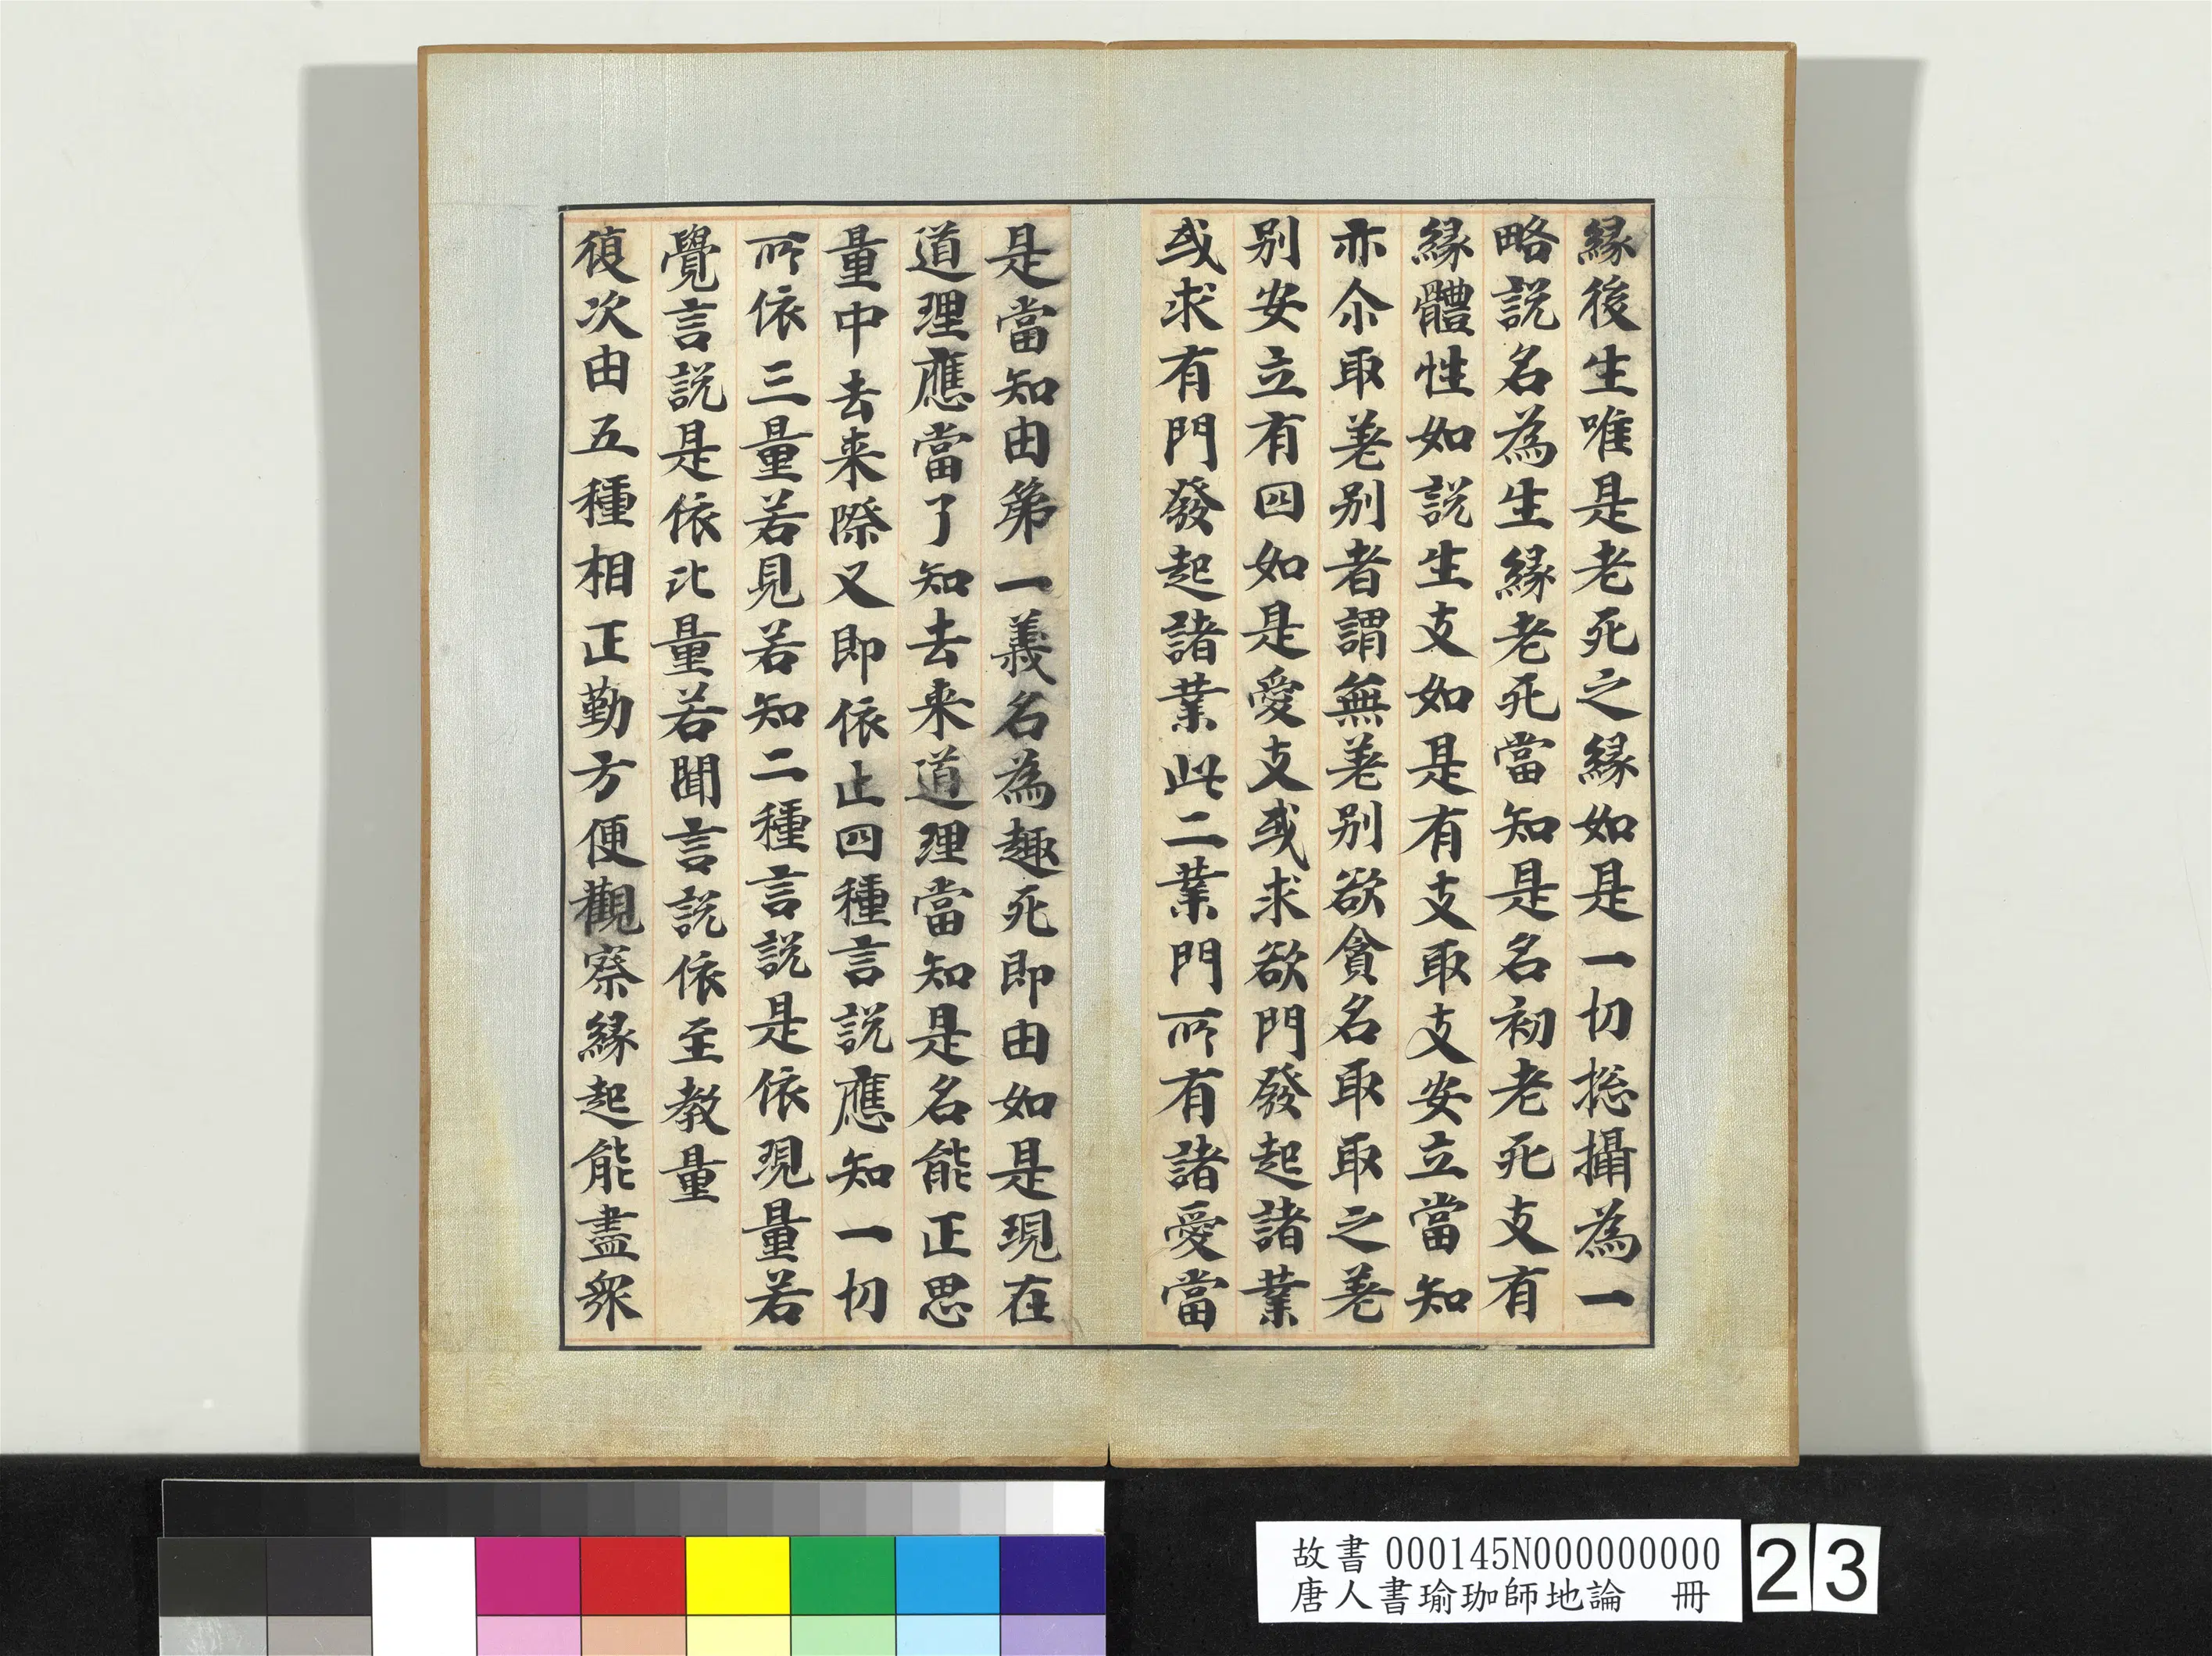 縁後生唯是老死之縁如是一切捴攝為一
略説名為生縁老死當知是名初老死支有
縁體性如説生支如是有支取支安立當知
亦尒取差别者謂無差别欲貪名取取之差
别安立有四如是愛支或求欲門發起諸業
或求有門發起諸業此二業門所有諸愛當
是當知由第一義名為趣死即由如是現在
道理應當了知去来道理當知是名能正思
量中去来際又即依止四種言説應知一切
所依三量若見若知二種言説是依現量若
覺言説是依比量若聞言説依至教量
復次由五種相正勤方便觀察縁起能盡衆
故書 000145N000000000
唐人書瑜珈師地論 冊
23